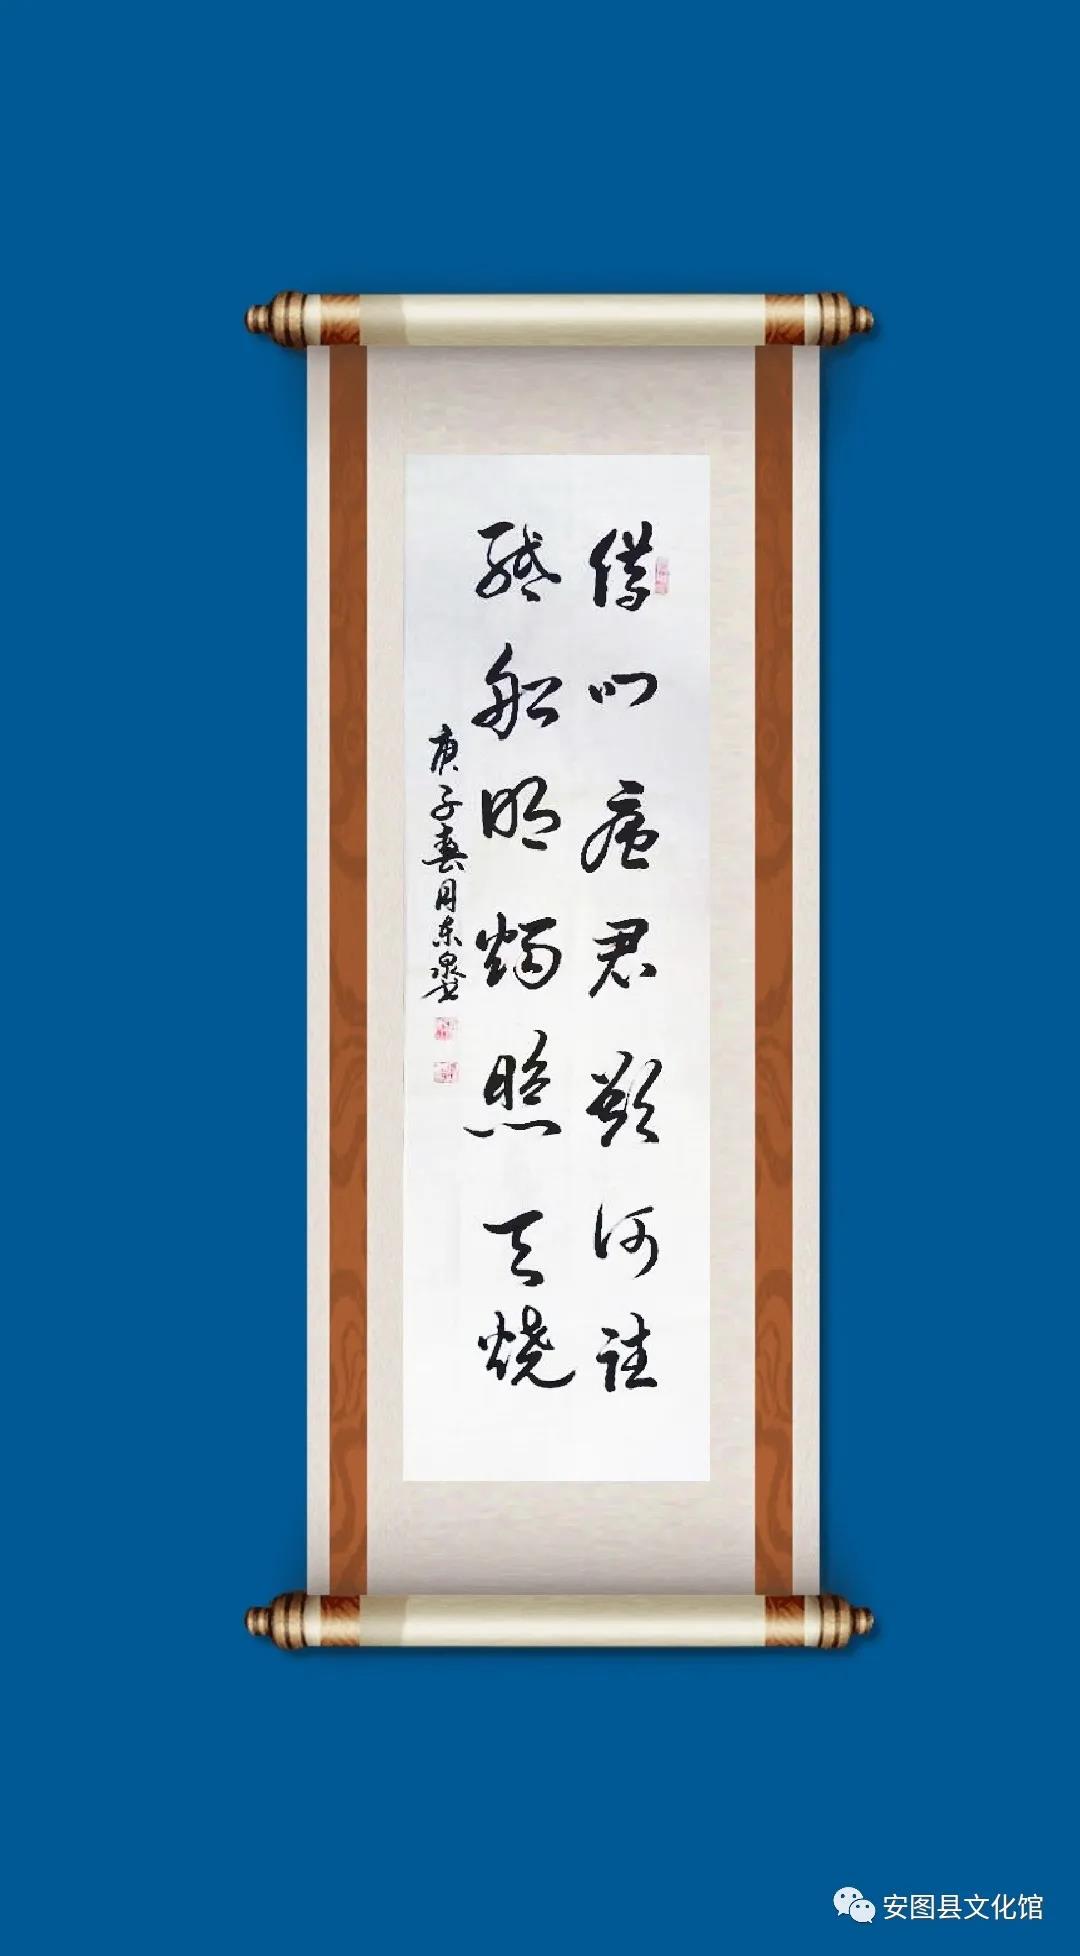 借问瘟君欲何往
纸船明烛照天烧
庚子春月东泉书
安图县文化馆